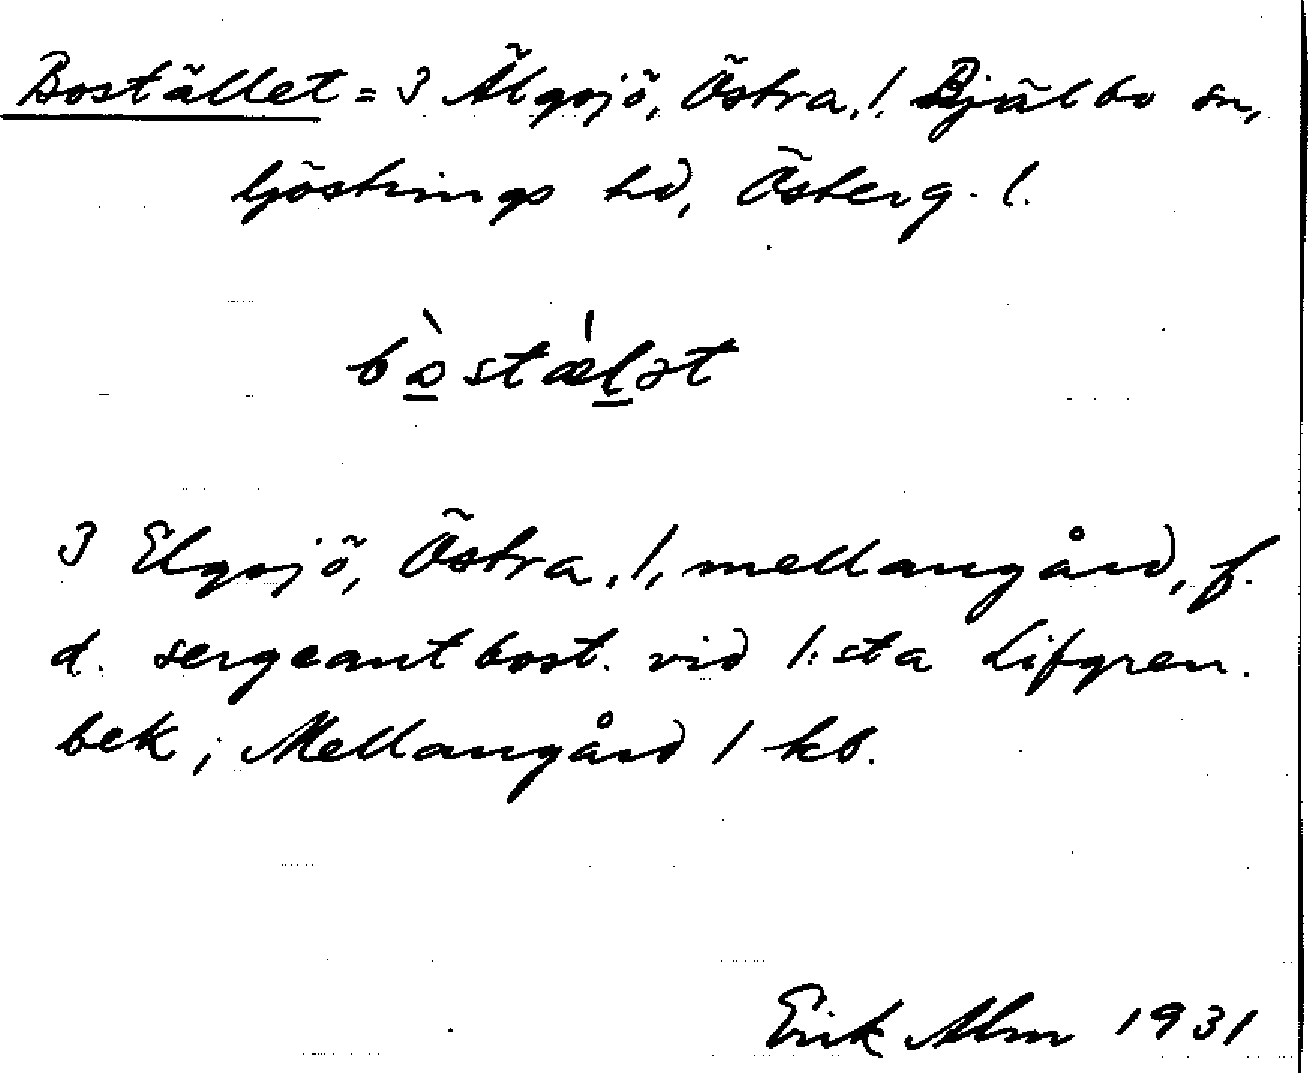 Bostället = 3 Älgsjö, Östra, 1. Bjälbo sn,
Göstrings hd, Österg. l.
bòstǽlət
3 Elgsjö, Östra, 1, mellangård, f.
d. sergeantbost. vid 1:sta Lifgren.
bek; Mellangård 1 kb.
Erik Alm 1931